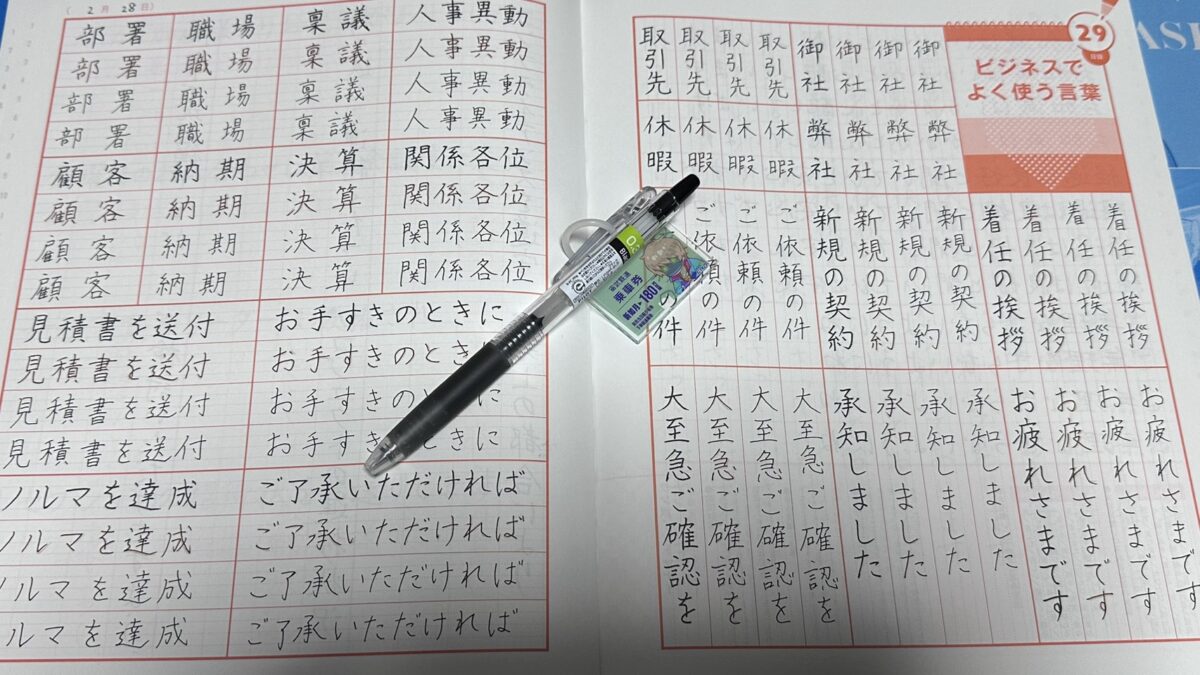 (2月28日)
部署 職場 稟議 人事異動
部署 職場 稟議 人事異動
部署 職場 稟議 人事異動
部署 職場 稟議 人事異動
顧客 納期 決算 関係各位
顧客 納期 決算 関係各位
顧客 納期 決算 関係各位
顧客 納期 決算 関係各位
見積書を送付 お手すきのときに
見積書を送付 お手すきのときに
見積書を送付 お手すきのときに
見積書を送付 お手すきときに
ノルマを達成 ご了承いただければ
ノルマを達成 ご了承いただければ
ノルマを達成 ご了承いただければ
ルマを達成 ご了承いただければ
29
日目
ビジネスで
よく使う言葉
御社
御社
御社
御社
取引先
取引先
取引先
取引先
弊社
弊社
弊社
弊社
休暇
休暇
休暇
休暇
着任の挨拶
着任の挨拶
着任の挨拶
着任の挨拶
新規の契約
新規の契約
新規の契約
新規の契約
ご依頼の件
ご依頼の件
ご依頼の件
の件
お疲れさまです
お疲れさまです
お疲れさまです
お疲れさまです
承知しました
承知しました
承知しました
承知しました
大至急ご確認を
大至急ご確認を
大至急ご確認を
大至急ご確認を
乗車券
180